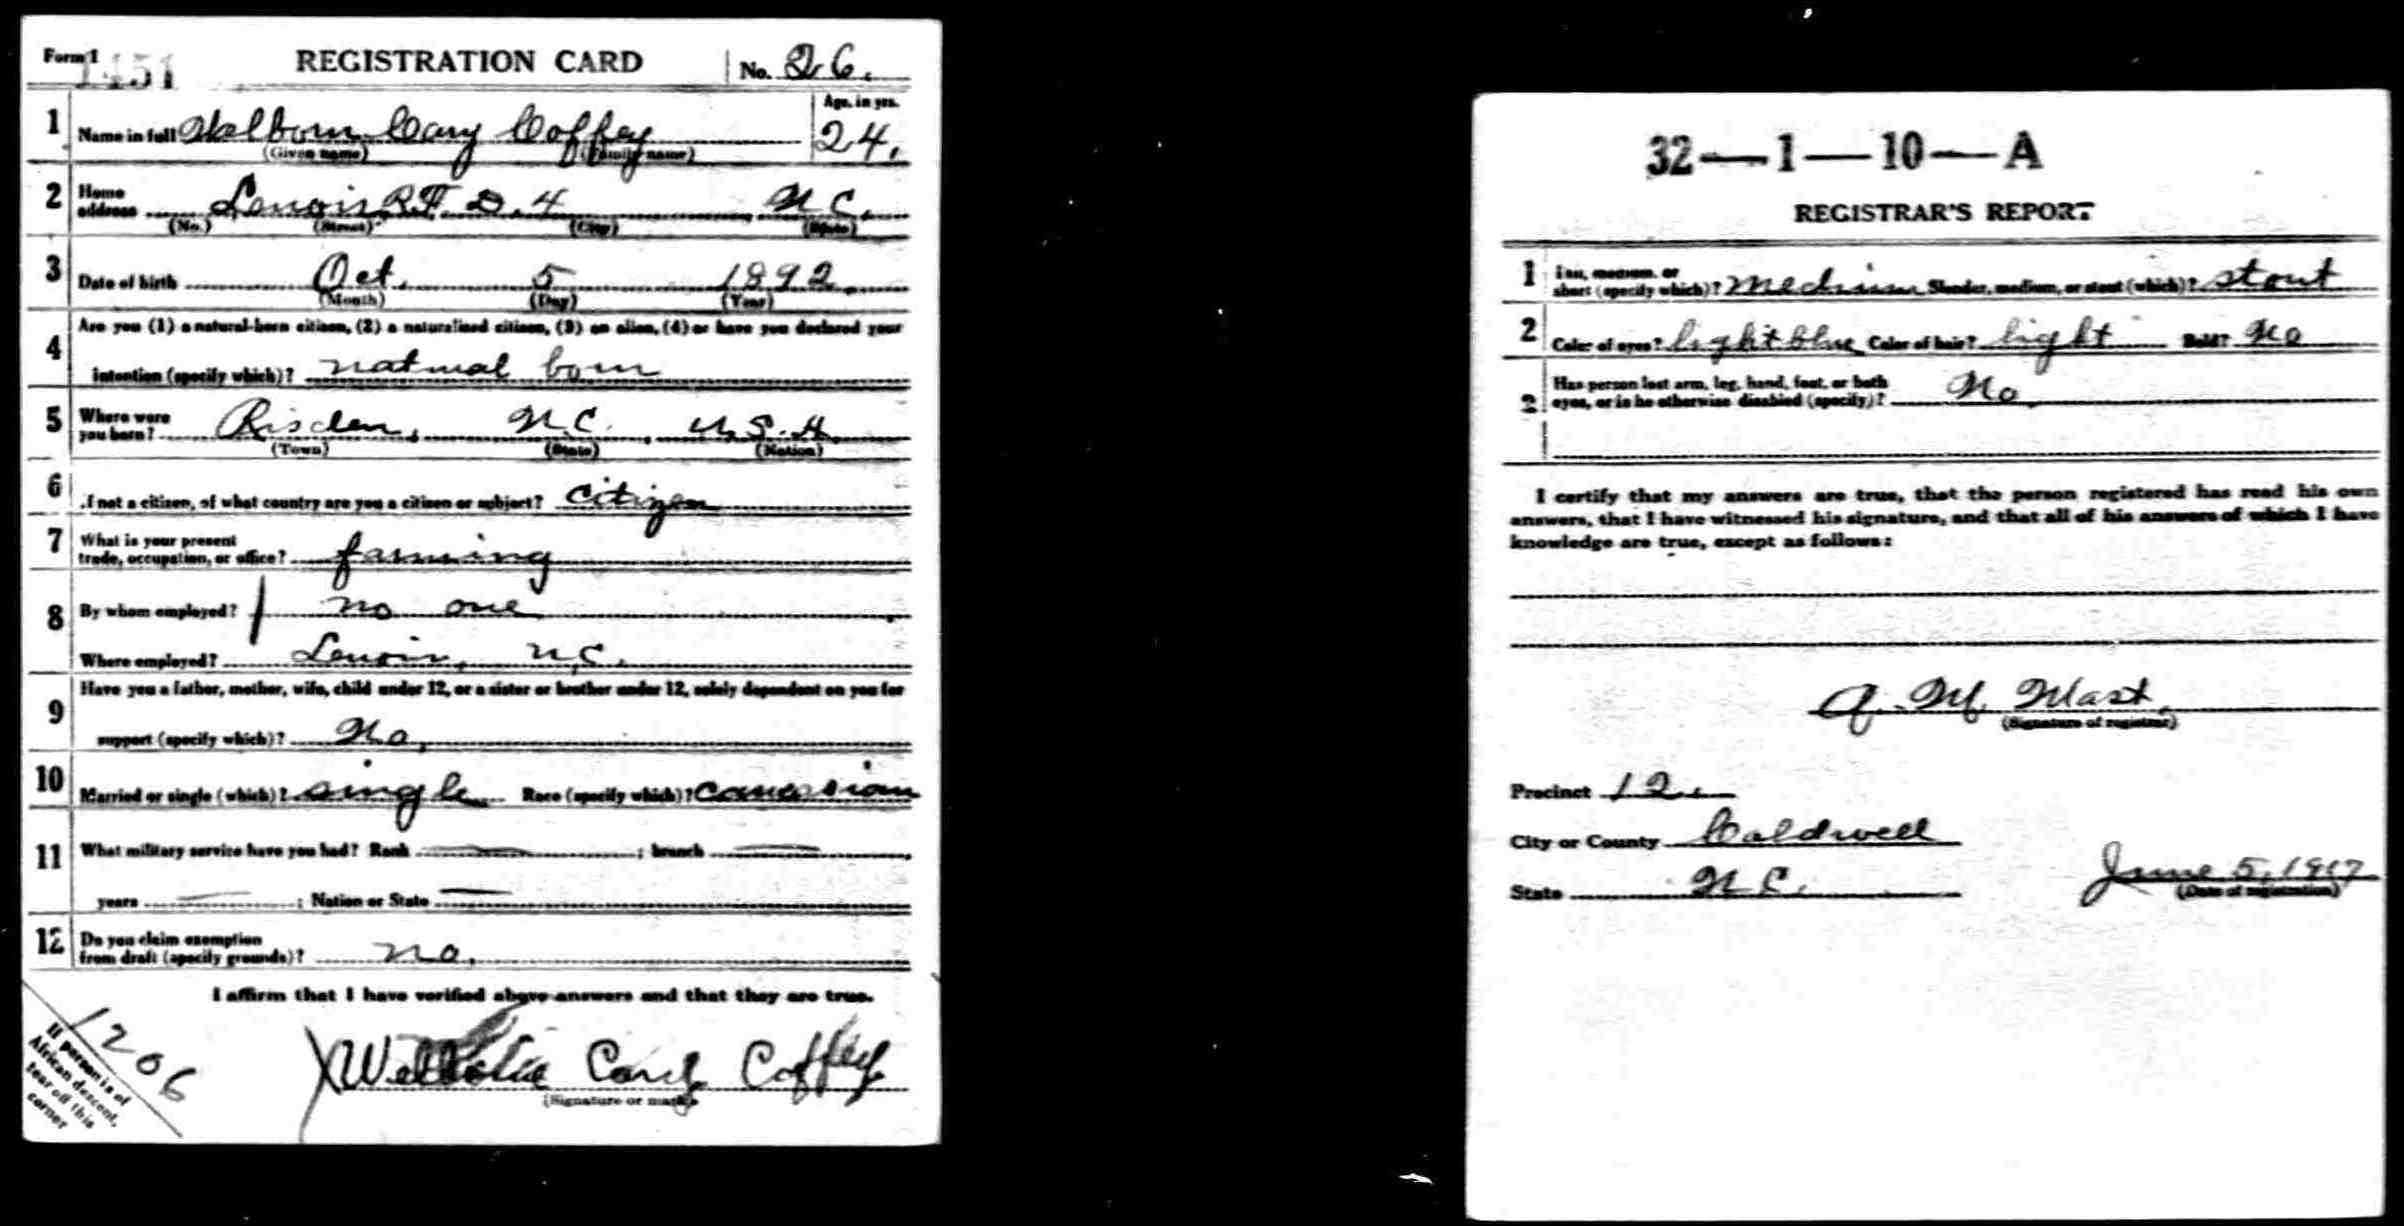 Form 1 1451 REGISTRATION CARD No. 26.
1 Name in full Welborn Cary Coffey Age, in yrs. 24.
(Given name) (Family name)
2 Home address Lenoir R.F.D. 4 N.C.
(No.) (Street) (City) (State)
3 Date of birth Oct. 5 1892
(Month) (Day) (Year)
4 Are you (1) a natural-born citizen, (2) a naturalized citizen, (3) an alien, (4) or have you declared your
intention (specify which)? natural born
5 Where were you born? Risden, N.C. U.S.A.
(Town) (State) (Nation)
6 If not a citizen, of what country are you a citizen or subject? Citizen
7 What is your present
trade, occupation, or office? farming
8 By whom employed? no one
Where employed? Lenoir, N.C.
9 Have you a father, mother, wife, child under 12, or a sister or brother under 12, solely dependent on you for
support (specify which)? No.
10 Married or single (which)? single Race (specify which)?
11 What military service have you had? Rank — ; branch —
years — ; Nation or State —
12 Do you claim exemption
from draft (specify grounds)? no.
I affirm that I have verified above answers and that they are true.
Cary Coffey
(Signature or mark)
1206
If person is of
African descent,
tear off this
corner
32—1—10—A
REGISTRAR'S REPORT
1 Tall, medium, or
short (specify which)? medium Slender, medium, or stout (which)? stout
2 Color of eyes? light blue Color of hair? light Bald? No
3 Has person lost arm, leg, hand, foot, or both
eyes, or is he otherwise disabled (specify)? No
I certify that my answers are true, that the person registered has read his own
answers, that I have witnessed his signature, and that all of his answers of which I have
knowledge are true, except as follows:
A. M. Mast.
(Signature of registrar)
Precinct 12.
City or County Caldwell
State N.C. June 5, 1917
(Date of registration)